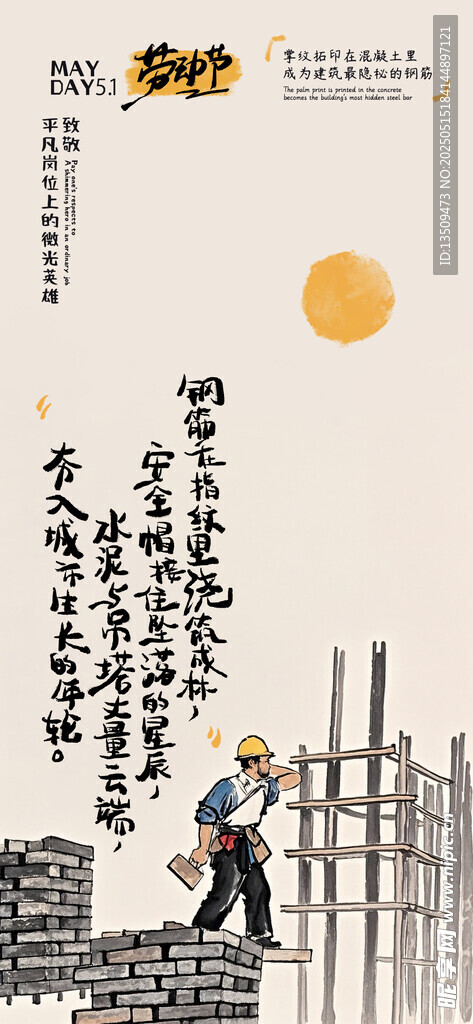 MAY
DAY5.1
劳动节
掌纹拓印在混凝土里
成为建筑最隐秘的钢筋
The palm print is printed in the concrete
becomes the building's most hidden steel bar
致敬
平凡岗位上的微光英雄
Pay one's respects to
A shimmering hero in an ordinary job
钢筋在指纹里浇筑成林，
安全帽接住坠落的星辰，
水泥与吊塔丈量云端，
夯入城市生长的年轮。
ID:13509473 NO:20250515184144897121
昵享网 www.nipic.cn